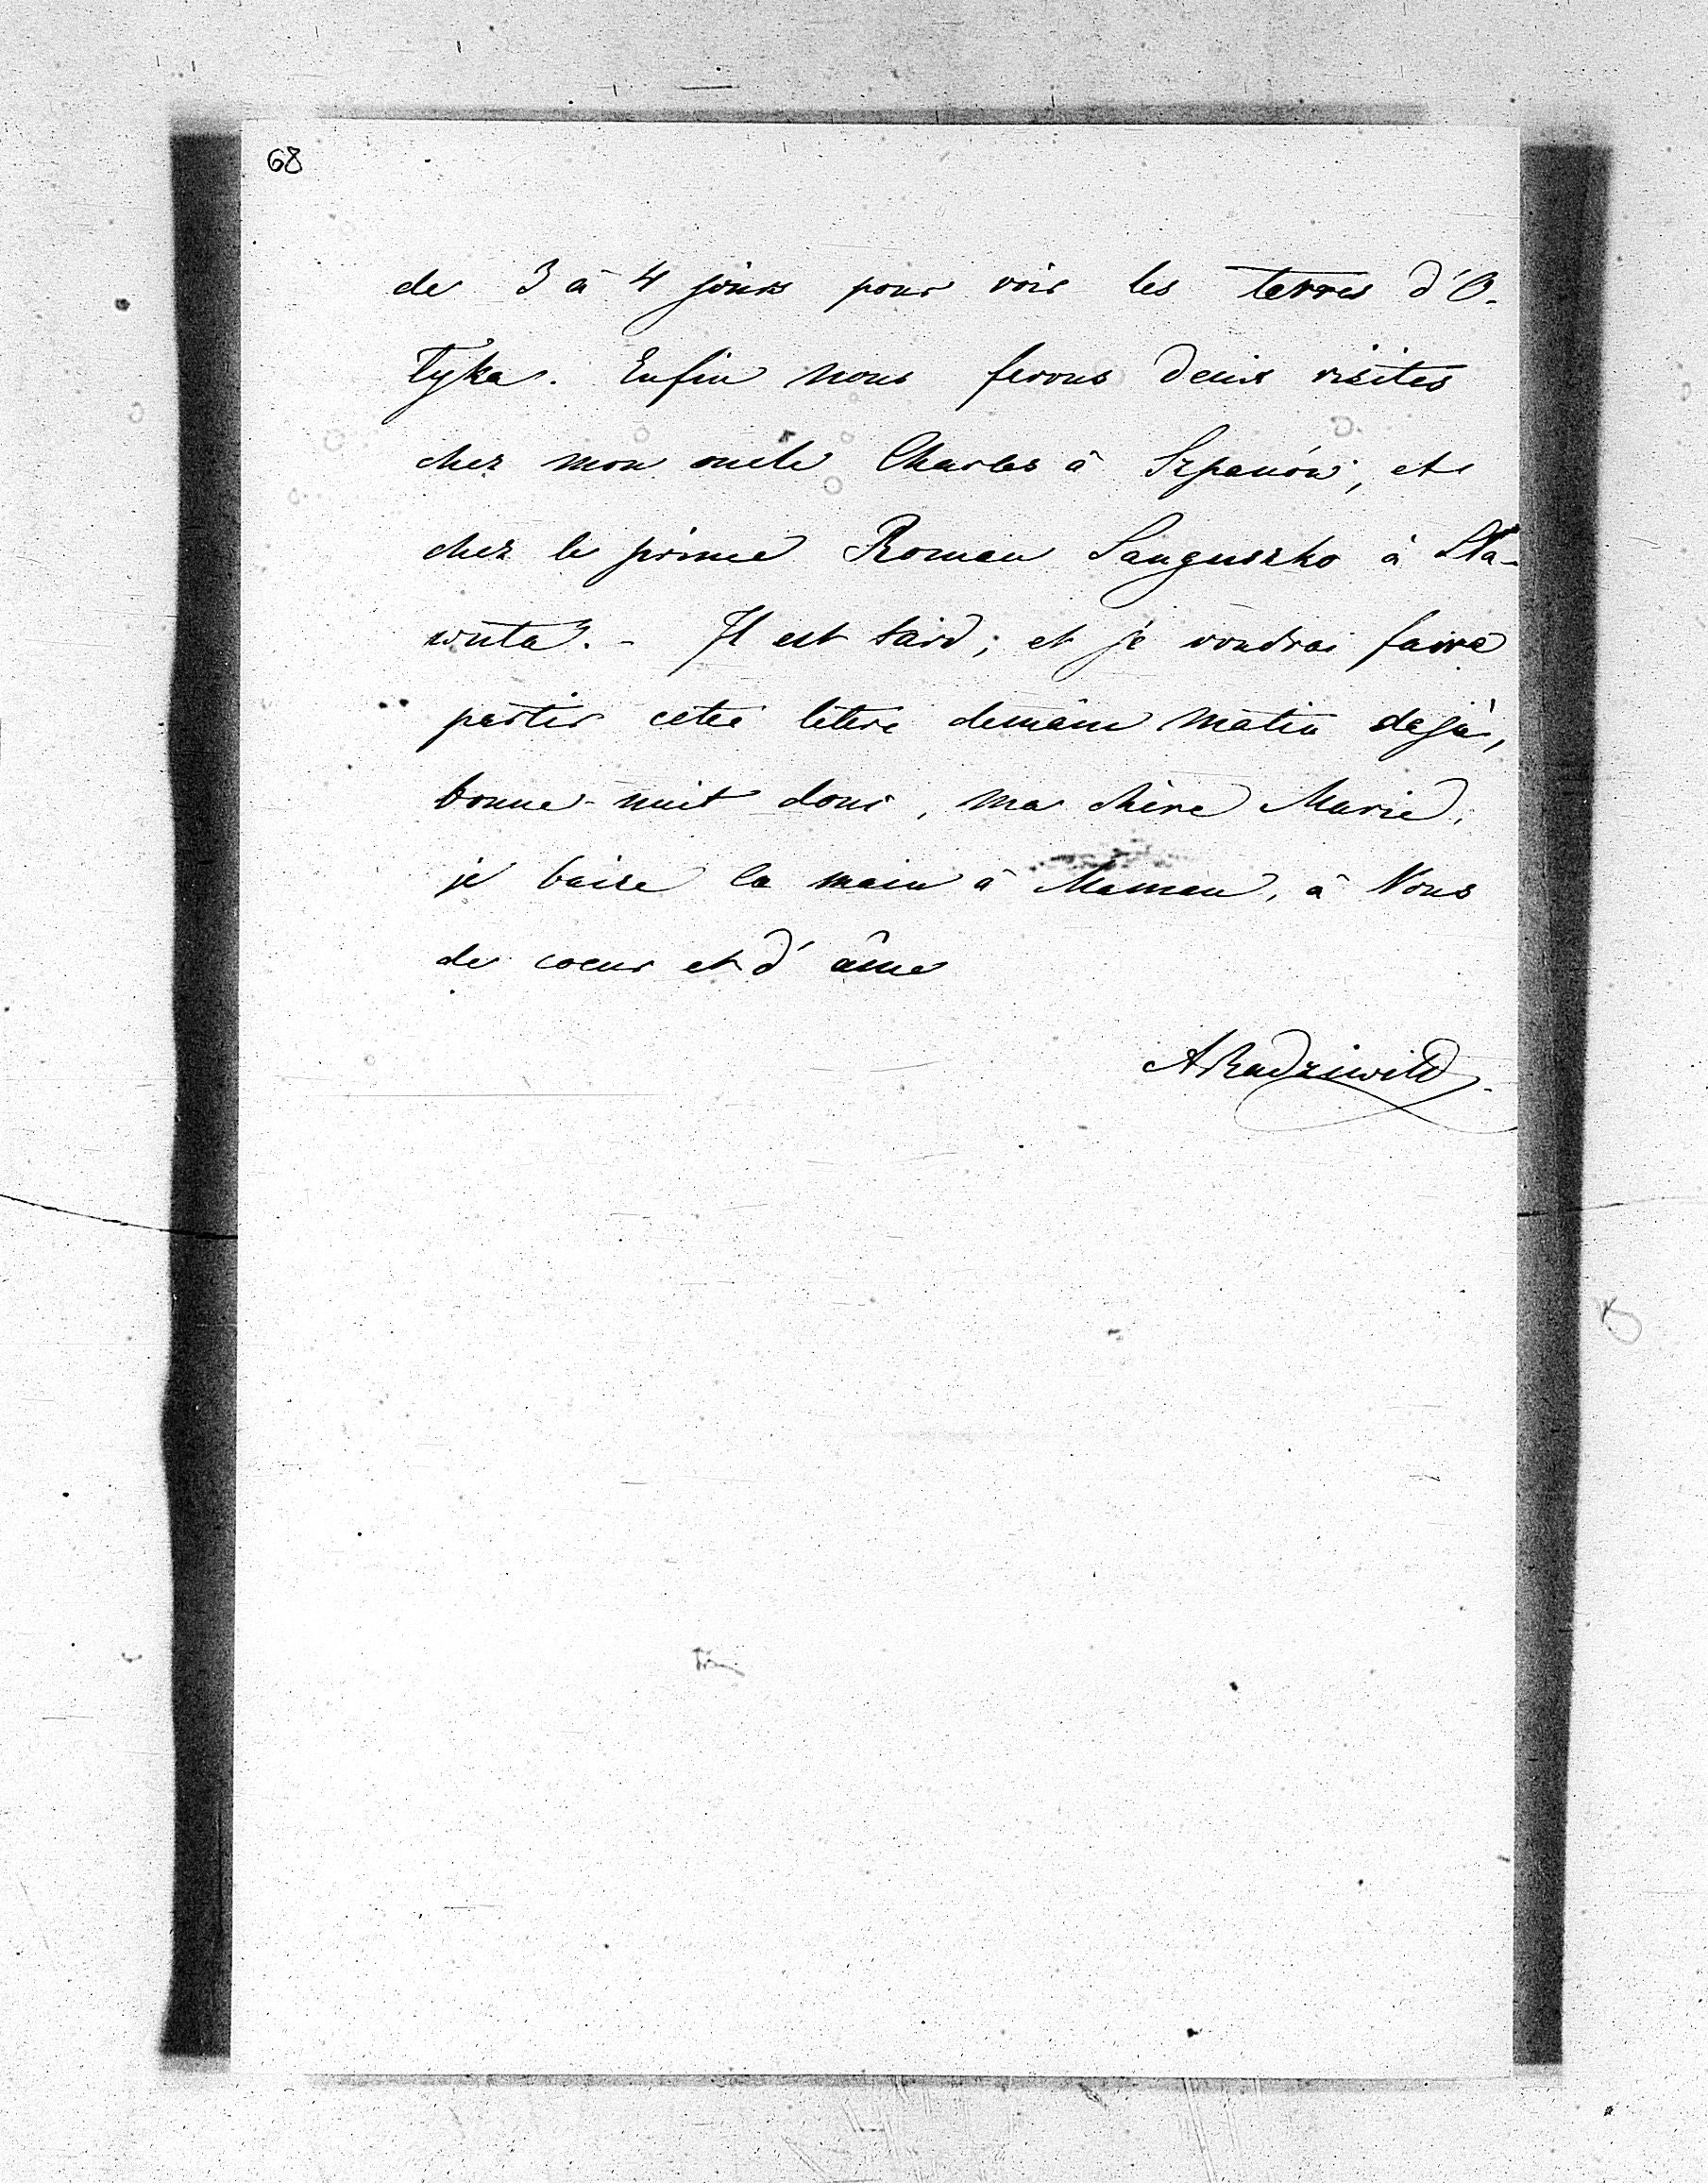 68
de 3 à 4 jours pour voir les terres d'O-
łyka. Enfin nous ferons deux visites
chez mon oncle Charles à Szpanów, et
chez le prince Roman Sanguszko à Sła-
wuta. - Il est tard; et je voudrai faire
partir cette lettre demain matin dejà,
bonne-nuit donc, ma chère Marie,
je baise la main à Maman, à Vous
de coeur et d'âme
ARadziwiłł.